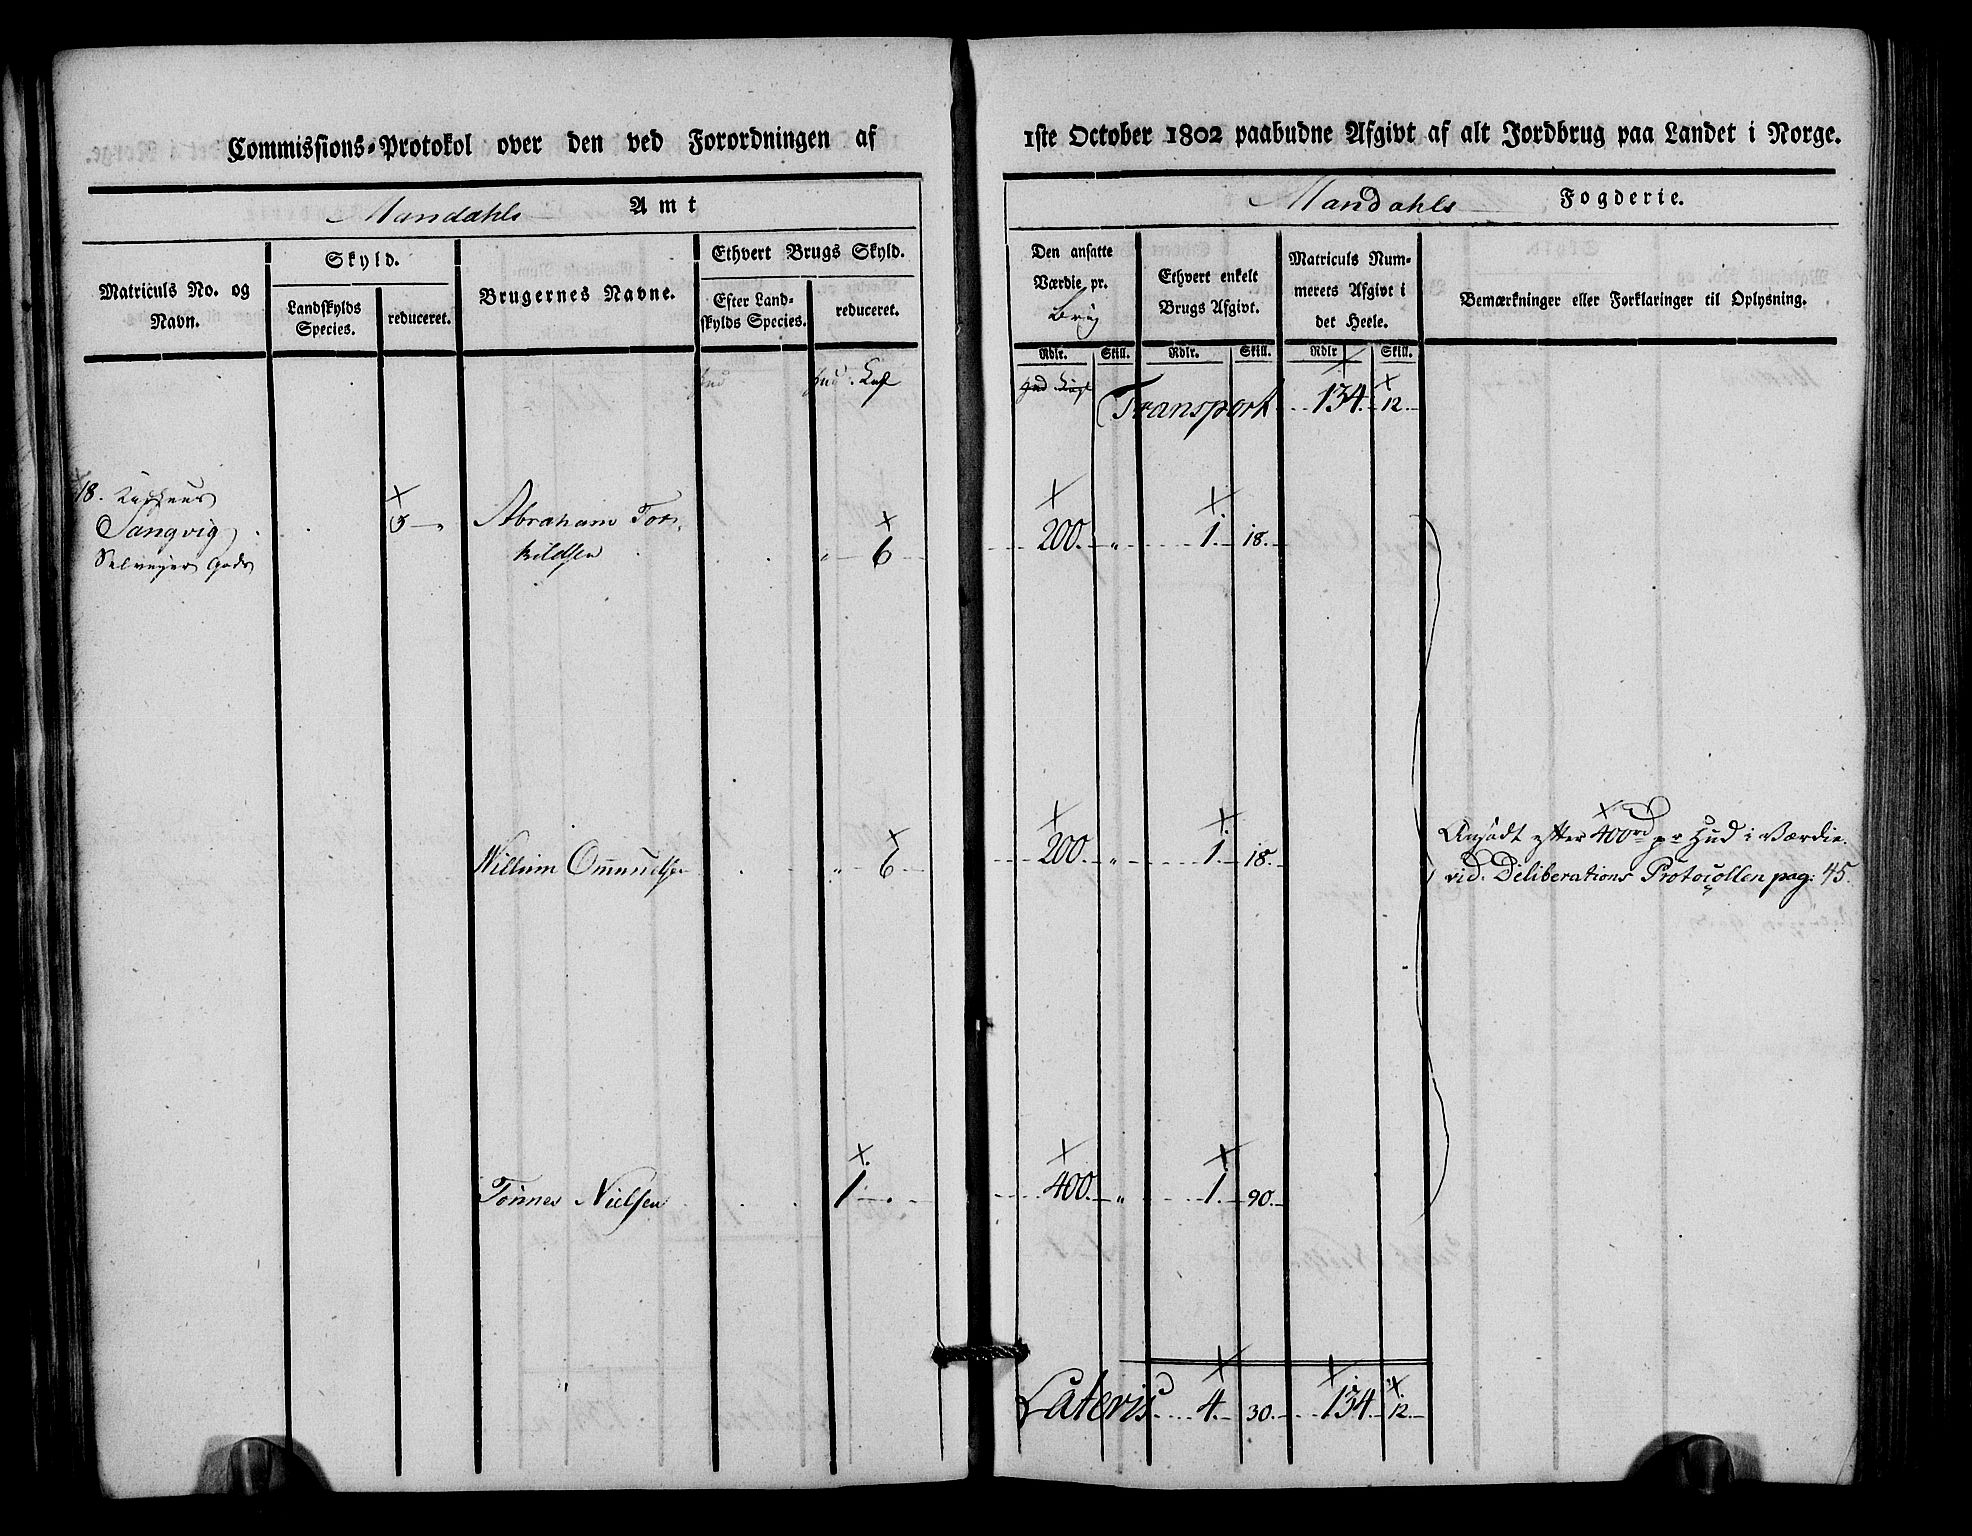 Commissions-Protokol over den ved Forordningen af
Mandahls Amt
Matriculs No. og
Navn.
Skyld.
Landskylds
Species.
reduceret.
Brugernes Navne.
Ethvert Brugs Skyld.
Efter Land-
skylds Species.
reduceret.
18.
Sangvig
Selveyer Gods
Abraham Tor-
kildsen
" 6
Willum Omundsen
" 6
Tönnes Nielsen
1 "
1ste October 1802 paabudne Afgivt af alt Jordbrug paa Landet i Norge.
Mandahls Fogderie.
Den ansatte
Værdie pr.
Brug
Ethvert enkelt
Brugs Afgivt.
Matriculs Num-
merets Afgivt i
det Heele.
Bemærkninger eller Forklaringer til Oplysning.
Rdlr. Skill. Rdlr. Skill. Rdlr Skill.
Transport 134. 12.
200. " 1. 18.
200. " 1. 18.
Ansadt efter 400rd pr Hud i Værdie.
vid. Deliberations Protocollen pag: 45.
400. " 1. 90.
Lateris 4. 30. 134. 12.